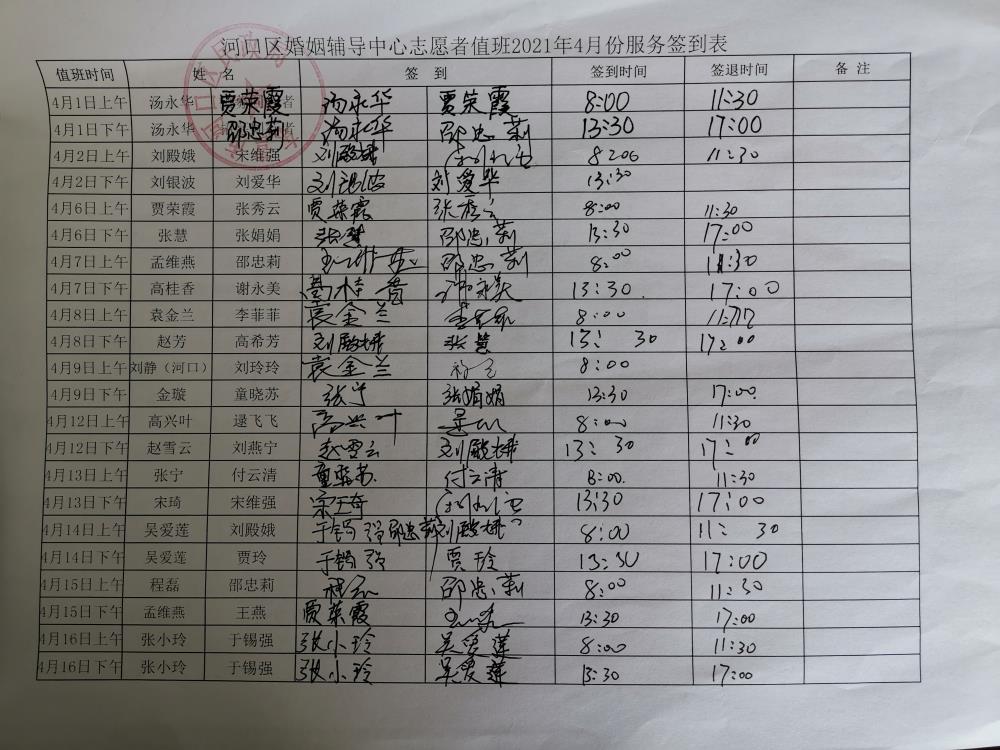 河口区婚姻辅导中心志愿者值班2021年4月份服务签到表
值班时间 姓 名 签 到 签到时间 签退时间 备 注
4月1日上午 汤永华 贾荣霞 者 汤永华 贾荣霞 8:00 11:30
4月1日下午 汤永华 邵忠莉 者 汤永华 邵忠莉 13:30 17:00
4月2日上午 刘殿娥 宋维强 刘殿娥 8:00 11:30
4月2日下午 刘银波 刘爱华 刘银波 刘爱华 13:30
4月6日上午 贾荣霞 张秀云 贾荣霞 张秀云 8:00 11:30
4月6日下午 张慧 张娟娟 张慧 邵忠莉 13:30 17:00
4月7日上午 孟维燕 邵忠莉 邵忠莉 8:00 11:30
4月7日下午 高桂香 谢永美 高桂香 谢永美 13:30 17:00
4月8日上午 袁金兰 李菲菲 袁金兰 8:00
4月8日下午 赵芳 高希芳 刘殿娥 张慧 13: 30 17:00
4月9日上午 刘静（河口） 刘玲玲 袁金兰 8:00
4月9日下午 金璇 童晓苏 张宁 张娟娟 13:30 17:00
4月12日上午 高兴叶 逯飞飞 高兴叶 8:00 11:30
4月12日下午 赵雪云 刘燕宁 赵雪云 刘殿娥 13:30 17:00
4月13日上午 张宁 付云清 童晓苏 付云清 8:00 11:30
4月13日下午 宋琦 宋维强 宋琦 13:30 17:00
4月14日上午 吴爱莲 刘殿娥 于锡强 邵忠莉 刘殿娥 8:00 11: 30
4月14日下午 吴爱莲 贾玲 于锡强 贾玲 13:30 17:00
4月15日上午 程磊 邵忠莉 程磊 邵忠莉 8:00 11:30
4月15日下午 孟维燕 王燕 贾荣霞 13:30 17:00
4月16日上午 张小玲 于锡强 张小玲 吴爱莲 8:00 11:30
4月16日下午 张小玲 于锡强 张小玲 吴爱莲 13:30 17:00